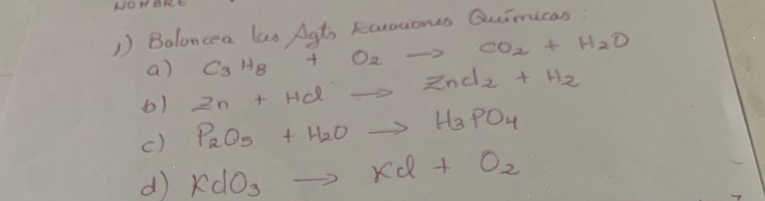 NOMBRE
1) Balancea las Agts Ecuaciones Químicas :
a) C3 H8 + O2 → CO2 + H2O
b) Zn + HCl → ZnCl2 + H2
c) P2O5 + H2O → H3PO4
d) KClO3 → KCl + O2